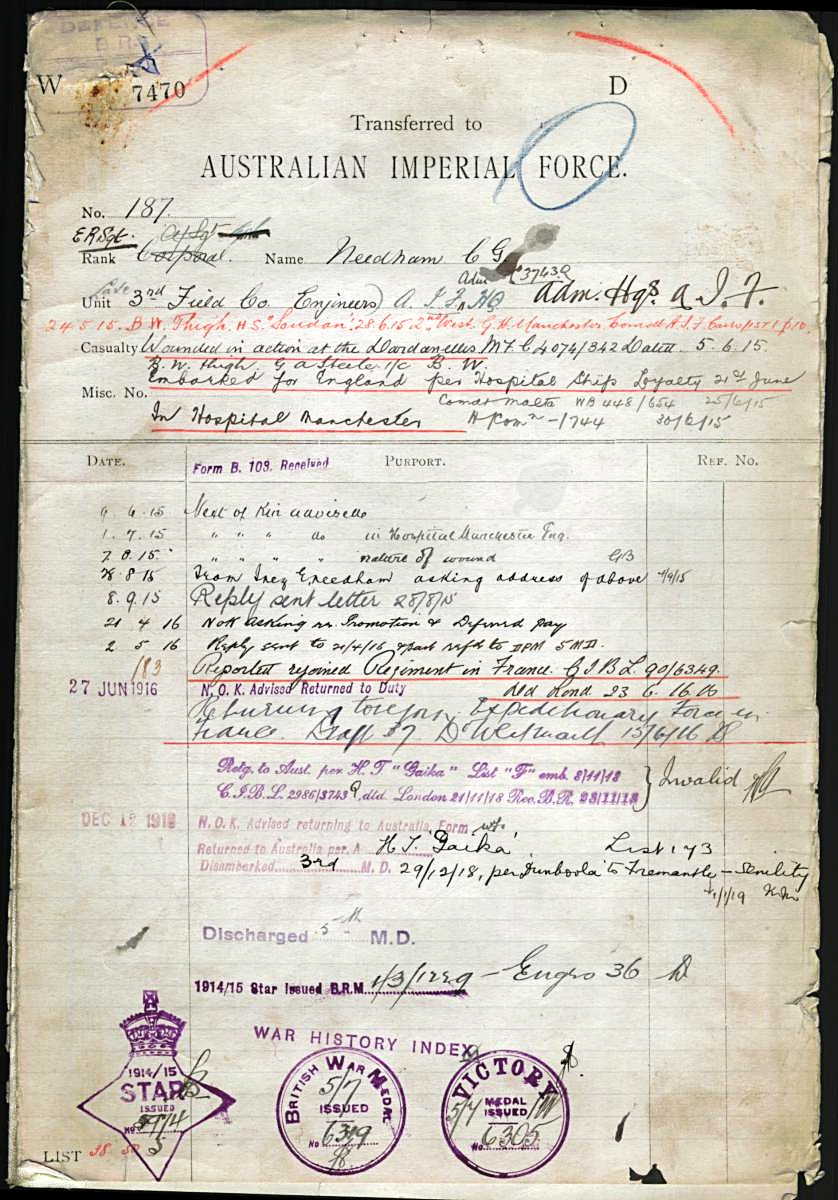 DEFENCE
B.R.
W
7470
D
Transferred to
AUSTRALIAN IMPERIAL FORCE.
No. 187
ER Sgt. A/Sgt
Rank Corporal. Name Needham C G
Adm C 3743
Unit 3rd Field Co Engineers A. I. F. HQ Adm. Hqrs A. I. F.
24 5 15. B. W. Thigh. H. S. "Soudan". 28.6.15 2nd West. G. H. Manchester.
Casualty Wounded in action at the Dardanelles MFC 4074/342 Dated 5.6.15.
B. W. thigh. B. W.
Embarked for England per Hospital Ship Loyalty 21st June
Misc. No. Comdt Malta WB 448/654 25/6/15
In Hospital Manchester -1744 30/6/15
DATE. Form B. 103. Received PURPORT. REF. No.
9 6 15 Next of Kin advised
1. 7. 15 " " " do in Hospital Manchester Eng.
7. 8. 15 " " " " nature of wound
8 15 From Needham asking address of above
8. 9. 15 Reply sent letter 28/8/15
21 4 16 NoK asking re Promotion & Deferred pay
2 5 16 Reply sent to 21/4/16 & part refd to DPM 5 MD.
183 Reported rejoined Regiment in France. C I B L. 90/6349.
27 JUN 1916 N.O.K. Advised Returned to Duty dtd Lond. 23 6. 16
Returning to join Expeditionary Force in
France. Draft 37 15/6/16
Retg. to Aust. per H.T "Gaika" List "F" emb. 8/11/18
C.I.B.L. 2986/3743, dtd. London 21/11/18 Rec. B.R. 23/11/18 } Invalid
DEC 12 1918 N.O.K. Advised returning to Australia, Form
Returned to Australia per. A H. T. 'Gaika' List 173
Disembarked 3rd M. D. 29/12/18, per Dunboola to Fremantle – Senility
1/1/19
Discharged 5th M.D.
1914/15 Star Issued B.R.M. 1/3/1229 – Engrs 36
WAR HISTORY INDEX
1914/15
STAR
ISSUED
No.
BRITISH WAR MEDAL
5/7
ISSUED
No 6319
VICTORY
MEDAL
5/7 ISSUED
No. 6305
LIST